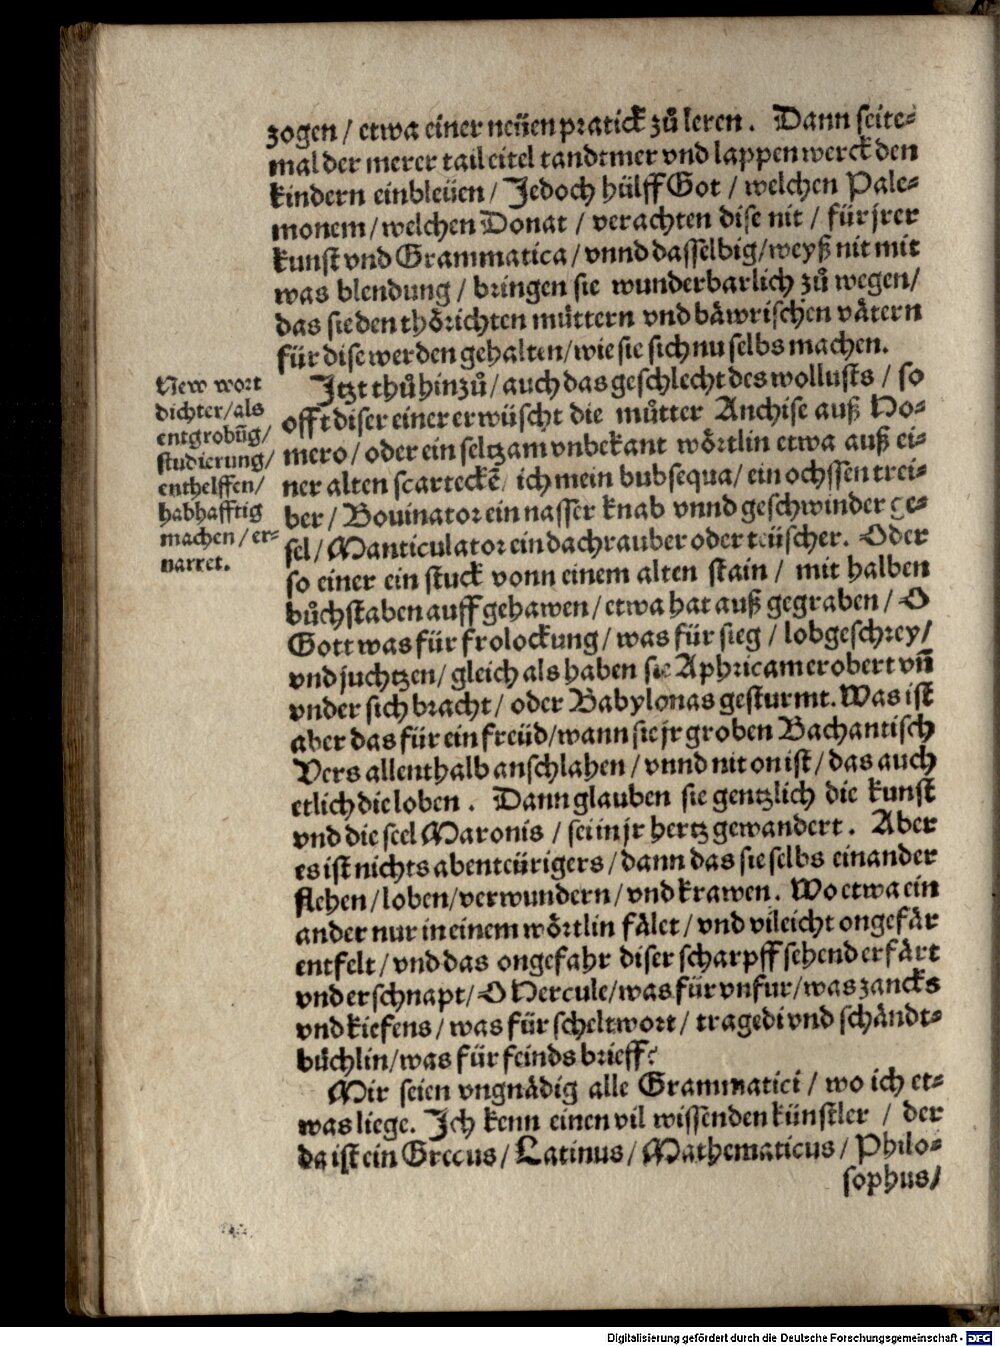 zogen / etwa einer neüen pratick zů leren . Dann seite⸗
mal der merer tail eitel tandtmer vnd lappenwerck den
kindern einbleüen / Jedoch hülff Got / welchen Pale⸗
monem / welchen Donat / verachten dise nit / für jrer
kunst vnd Grammatica / vnnd dasselbig / weyß nit mit
was blendung / bringen sie wunderbarlich zů wegen /
das sie den thôrichten můttern vnd bâwrischen vâtern
für dise werden gehalten / wie sie sich nu selbs machen.
Jtzt thů hinzů / auch das geschlecht des wollusts / so
offt diser einer erwüscht die můtter Anchise auß Ho⸗
mero / oder ein seltzam vnbekant wôrtlin etwa auß ei⸗
ner alten scarteckē / ich mein bubsequa / ein ochssen trei⸗
ber / Bouinator ein nasser knab vnnd geschwinder ge⸗
sel / Manticulator ein dachrauber oder teüscher. Oder
so einer ein stuck vonn einem alten stain / mit halben
bůchstaben auff gehawen / etwa hat auß gegraben / O
Gott was für frolockung / was für sieg / lobgeschrey /
vnd juchtzen / gleich als haben sie Aphricam erobert vñ
vnder sich bracht / oder Babylonas gesturmt. Was ist
aber das für ein freüd / wann sie jr groben Bachantisch
Vers allenthalb anschlahen / vnnd nit on ist / das auch
etlich die loben . Dann glauben sie gentzlich die kunst
vnd die seel Maronis / sei in jr hertz gewandert . Aber
es ist nichts abenteürigers / dann das sie selbs einander
flehen / loben / verwundern / vnd krawen. Wo etwa ein
ander nur in einem wôrtlin fâlet / vnd vileicht ongefâr
entfelt / vnd das ongefahr diser scharpff sehend erfârt
vnd erschnapt / O Hercule / was für vnfur / was zancks
vnd kiefens / was für scheltwort / tragedi vnd schândt⸗
bůchlin / was für feinds brieff?
Mir seien vngnâdig alle Grammatici / wo ich et⸗
was liege. Jch kenn einen vil wissenden künstler / der
da ist ein Grecus / Latinus / Mathematicus / Philo⸗
sophus /
New wort
dichter / als
entgrobūg /
studierung /
enthelffen /
habhafftig
machen / er⸗
narret.
Digitalisierung gefördert durch die Deutsche Forschungsgemeinschaft - DFG